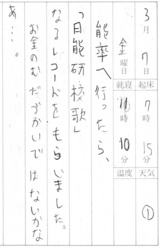 3月7日金曜日
起床7時15分
就寝11時10分
天気
温度
①
能率へ行ったら、
「日能研校歌」
なるレコードをもらいました。
お金のむだづかいではないかな
あ…。